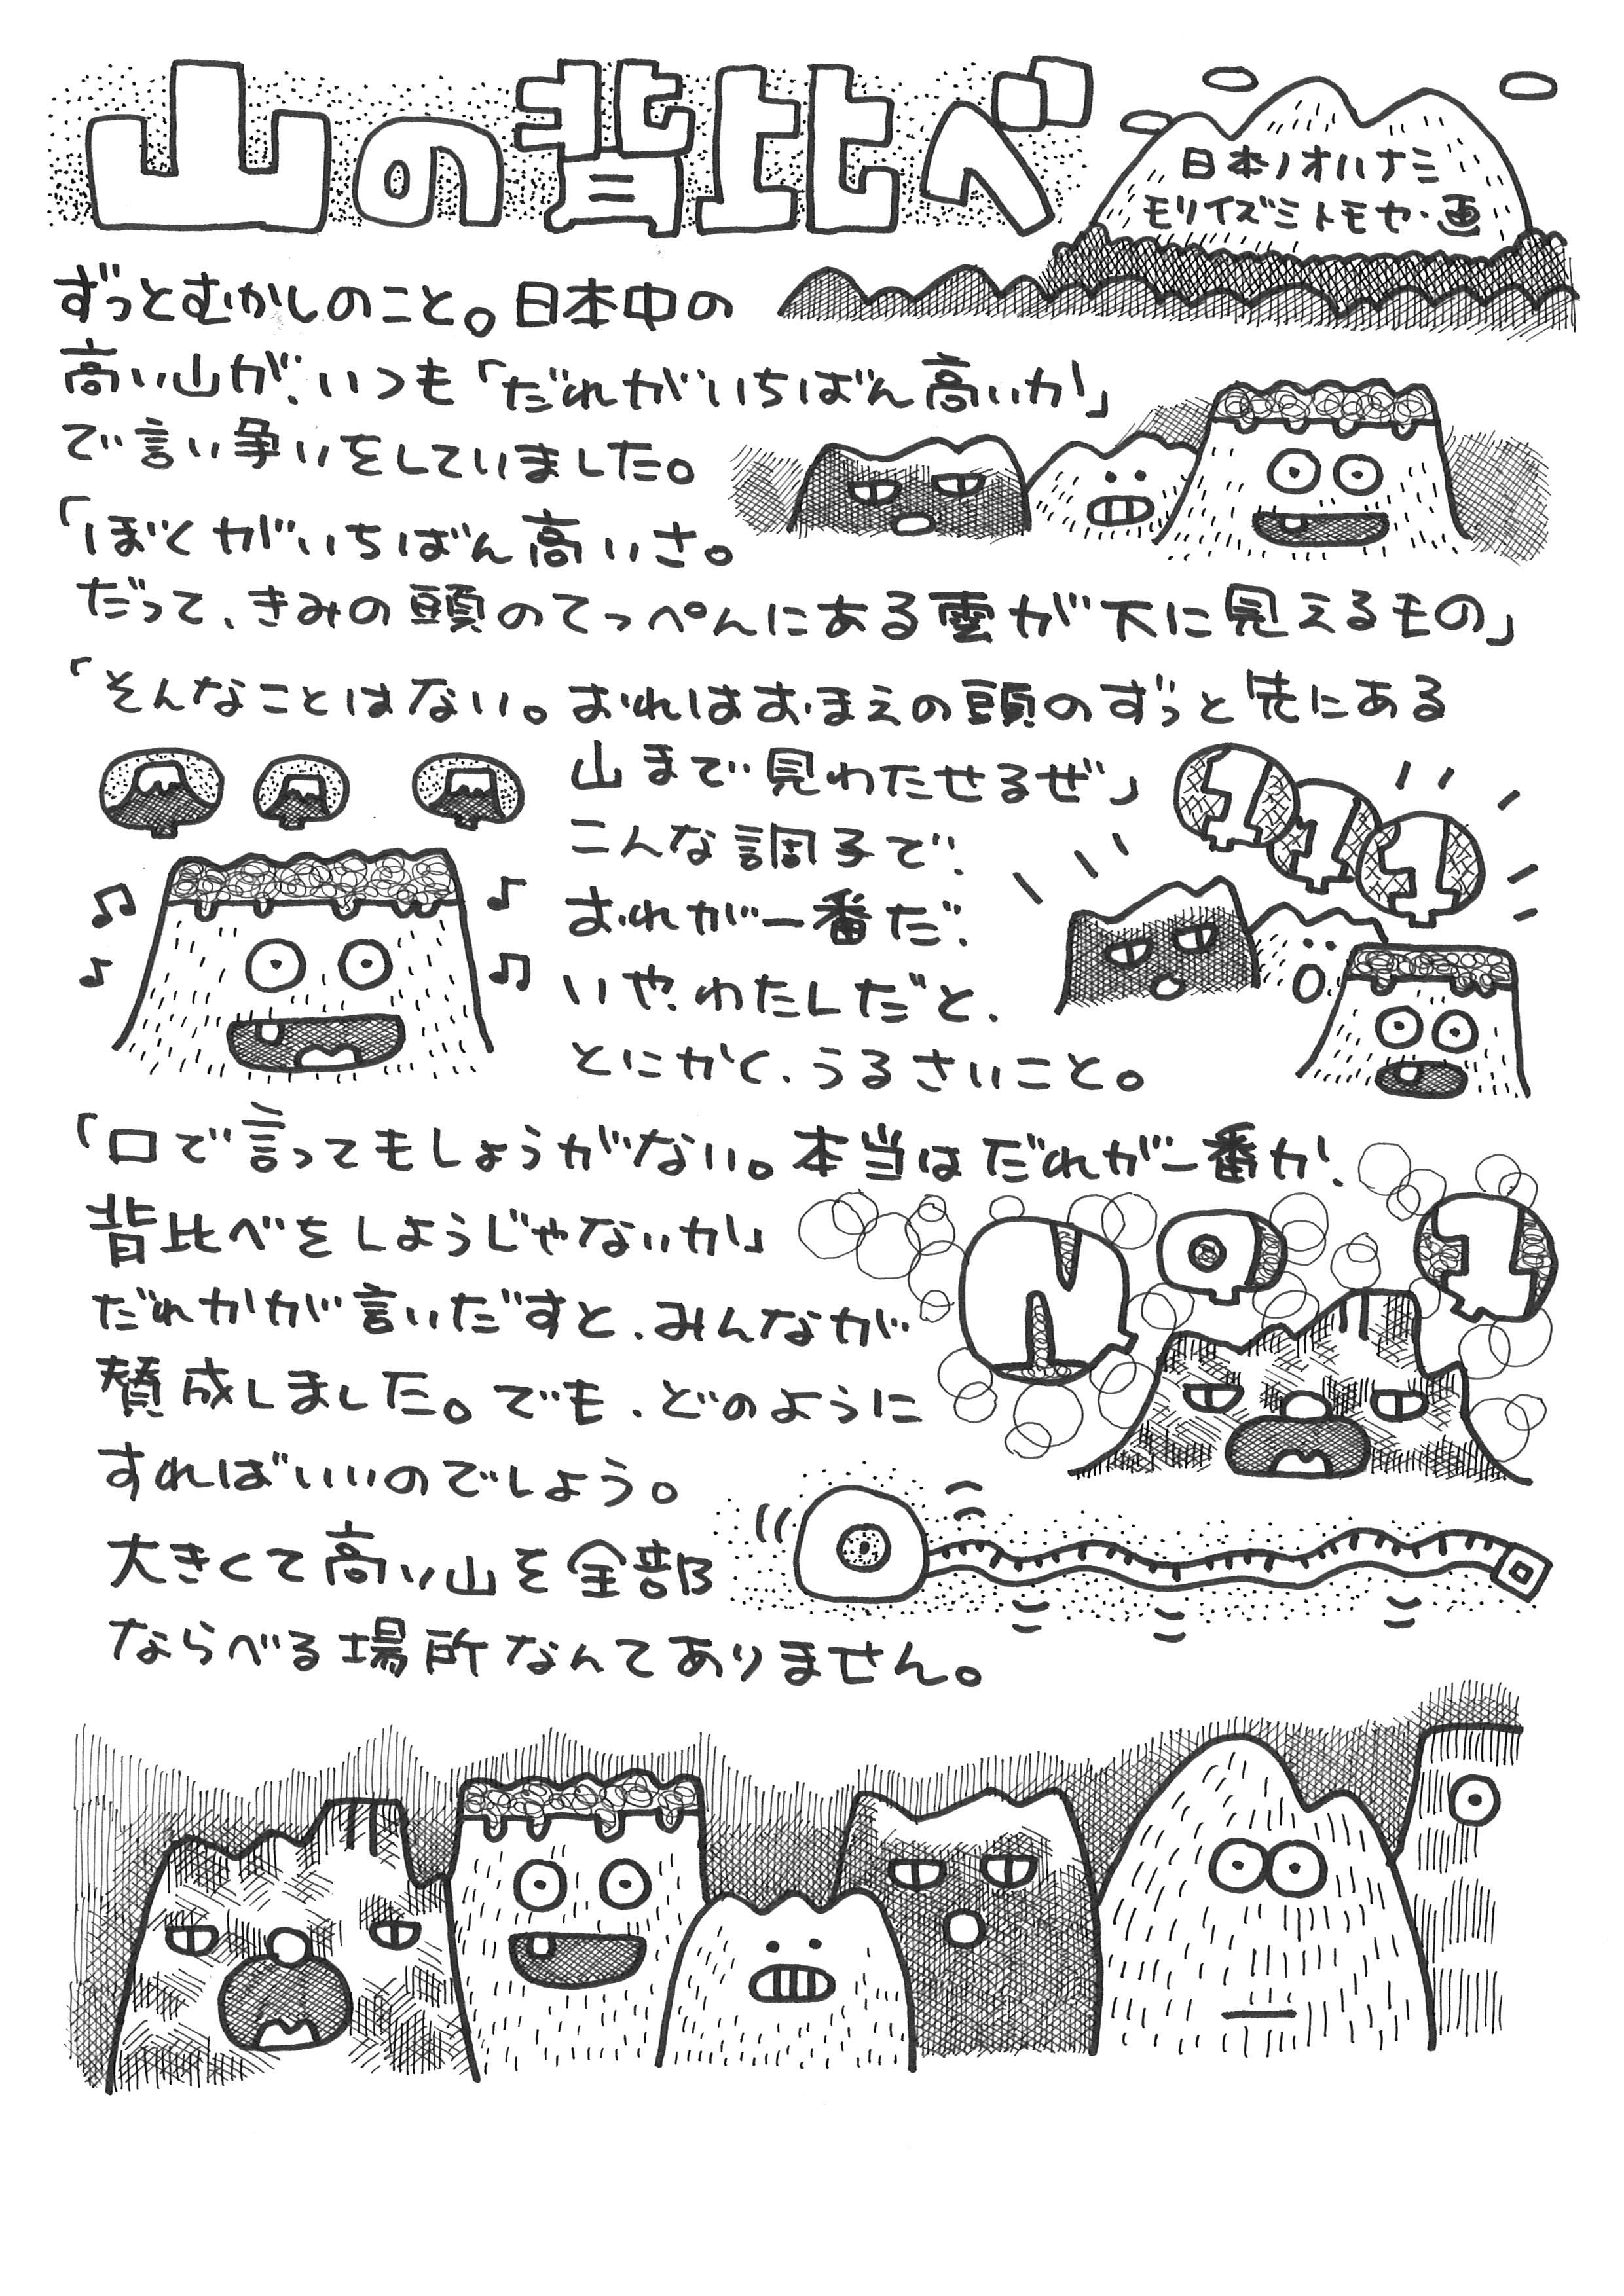 山の背比べ
日本ノオハナミ
モリイズミトモヤ・画
ずっとむかしのこと。日本中の
高い山が、いつも「だれがいちばん高いか」
で言い争いをしていました。
「ぼくがいちばん高いさ。
だって、きみの頭のてっぺんにある雲が下に見えるもの」
「そんなことはない。おれはおまえの頭のずっと先にある
山まで見わたせるぜ」
こんな調子で、
おれが一番だ、
いや、わたしだと、
とにかく、うるさいこと。
「口で言ってもしょうがない。本当はだれが一番か、
背比べをしようじゃないか」
だれかが言いだすと、みんなが
賛成しました。でも、どのように
すればいいのでしょう。
大きくて高い山を全部
ならべる場所なんてありません。
1
1
1
No1